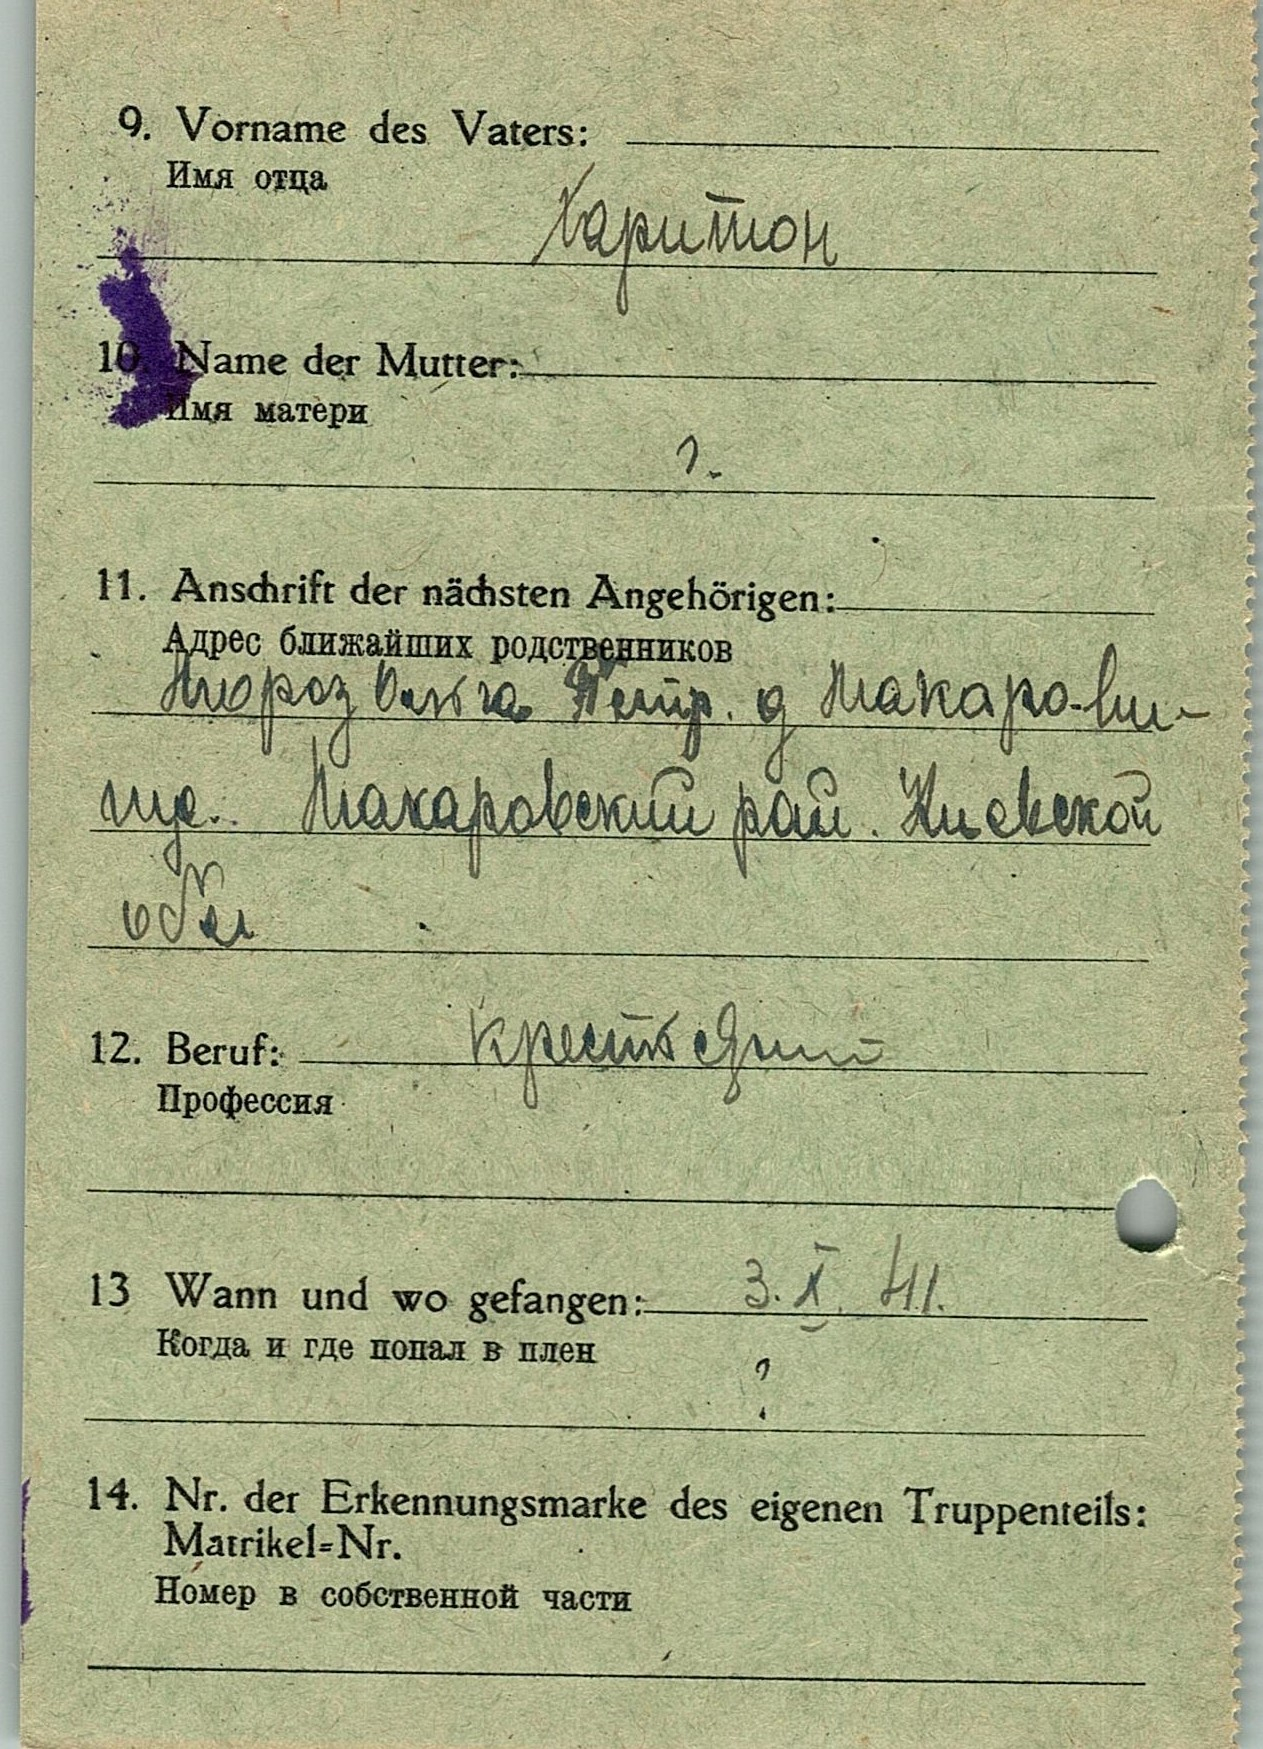 9. Vorname des Vaters:
Имя отца
Харитон
10. Name der Mutter:
Имя матери
?
11. Anschrift der nächsten Angehörigen:
Адрес ближайших родственников
Мороз Ольга Петр. д Макаро-ви-
ще. Макаровский рай. Киевской
обл
12. Beruf: крестьянин
Профессия
13 Wann und wo gefangen: 3. X. 41.
Когда и где попал в плен
?
14. Nr. der Erkennungsmarke des eigenen Truppenteils:
Matrikel=Nr.
Номер в собственной части